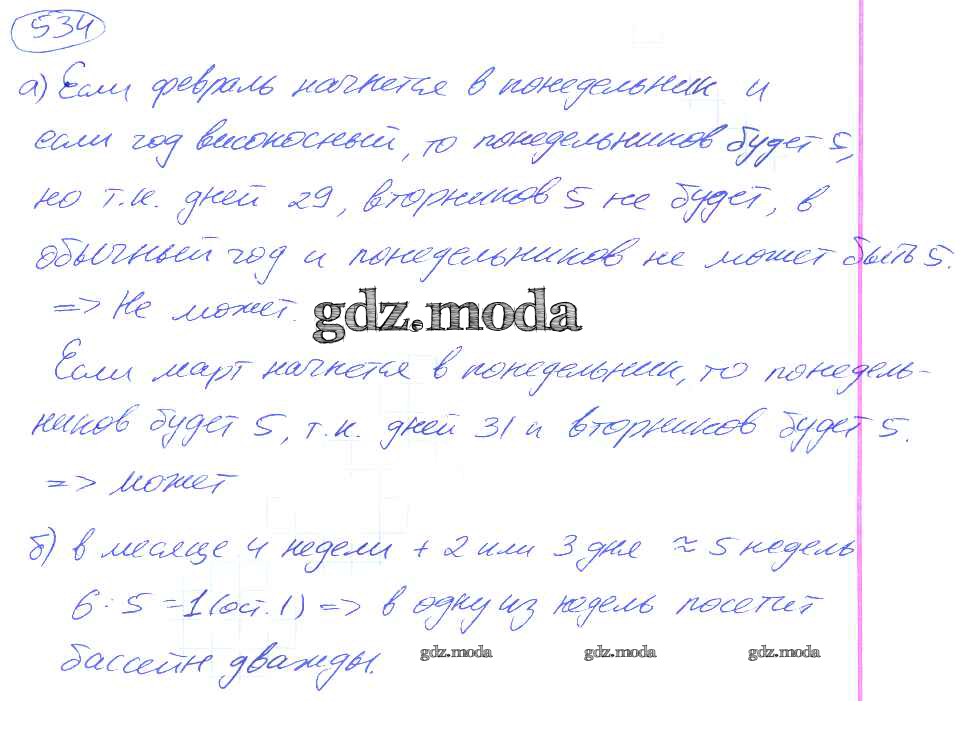 534
а) Если февраль начнется в понедельник и
если год високосный, то понедельников будет 5,
но т.к. дней 29, вторников 5 не будет, в
обычный год и понедельников не может быть 5.
=> Не может.
gdz.moda
Если март начнется в понедельник, то понедель-
ников будет 5, т.к. дней 31 и вторников будет 5.
=> может
б) в месяце 4 недели + 2 или 3 дня ≈ 5 недель
6 : 5 = 1 (ост. 1) => в одну из недель посетит
бассейн дважды.
gdz.moda gdz.moda gdz.moda